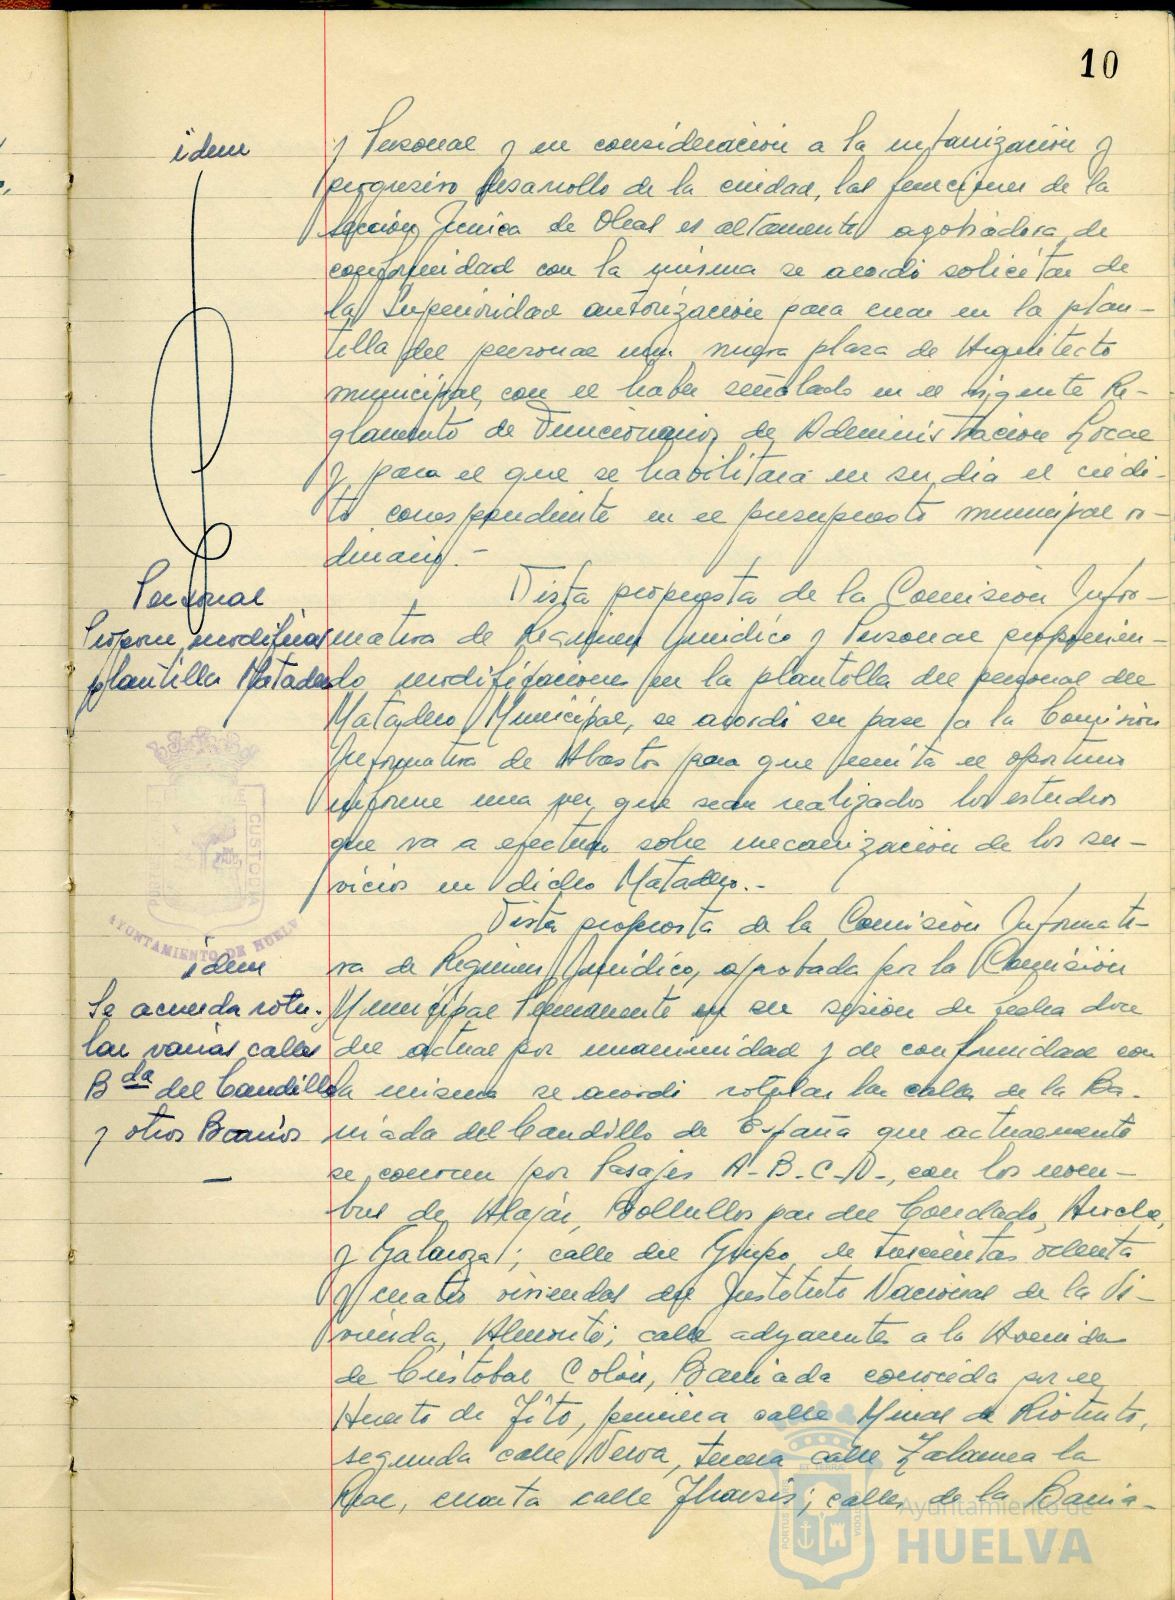 10
idem
y Personal y en consideración a la urbanización y
progresivo desarrollo de la ciudad, las funciones de la
Sección Técnica de Obras es altamente agobiadora, de
conformidad con la misma se acordó solicitar de
la Superioridad autorización para crear en la plan-
tilla del personal una nueva plaza de Arquitecto
municipal, con el haber señalado en el vigente Re-
glamento de Funcionarios de Administración Local
y para el que se habilitará en su día el crédi-
to correspondiente en el presupuesto municipal or-
dinario.-
Personal
Propone modificar
plantilla Matadero
Vista propuesta de la Comisión Infor-
mativa de Régimen Jurídico y Personal proponien-
do modificaciones en la plantolla del personal del
Matadero Municipal, se acordó su pase a la Comisión
Informativa de Abastos para que emita el oportuno
informe una vez que sean realizados los estudios
que va a efectuar sobre mecanización de los ser-
vicios en dicho Matadero.-
PORTUS
CUSTODIA
AYUNTAMIENTO DE HUELVA
idem
Se acuerda rotu-
lar varias calles
Bda del Caudillo
y otros Barrios
Vista propuesta de la Comisión Informati-
va de Régimen Jurídico, aprobada por la Comisión
Municipal Permanente en su sesión de fecha doce
del actual por unanimidad y de conformidad con
la misma se acordó rotular las calles de la Ba-
rriada del Caudillo de España que actualmente
se conocen por Pasajes A-B-C-D-, con los nom-
bres de Alajar, Bollullos par del Condado, Aroche,
y Galaroza; calle del Grupo de trescientas ochenta
y cuatro viviendas del Instituto Nacional de la Vi-
vienda, Almonte; calle adyacentes a la Avenida
de Cristobal Colón, Barriada conocida por el
Huerto de Tito, primera calle Minas de Riotinto,
segunda calle Nerva, tercera calle Zalamea la
Real, cuarta calle Tharsis; calles de la Barria-
Ayuntamiento de
HUELVA